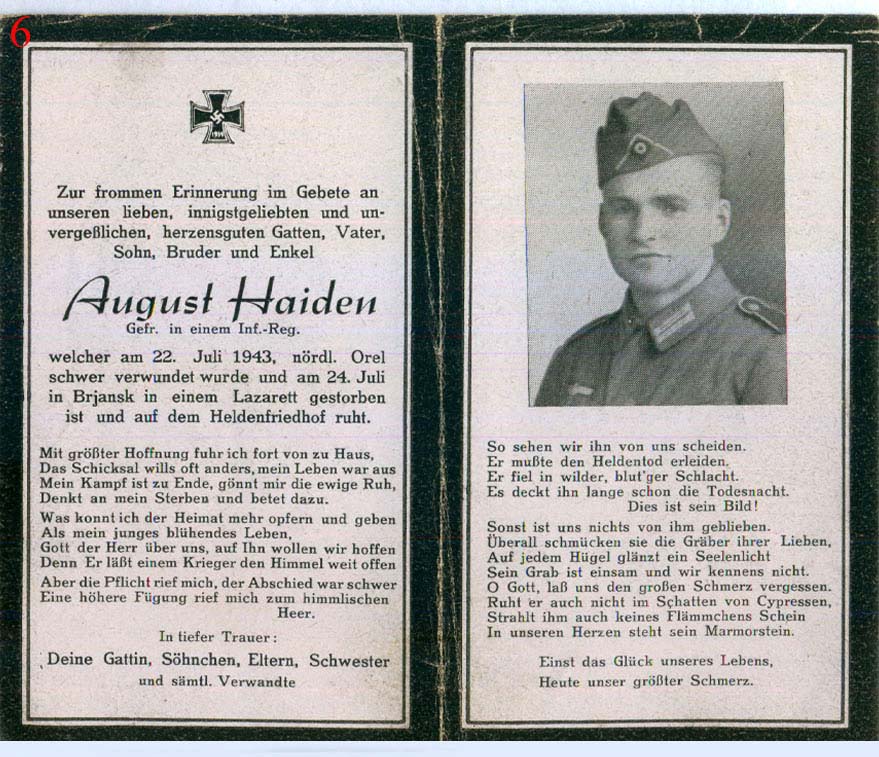 6
1939
Zur frommen Erinnerung im Gebete an
unseren lieben, innigstgeliebten und un-
vergeßlichen, herzensguten Gatten, Vater,
Sohn, Bruder und Enkel
August Haiden
Gefr. in einem Inf.-Reg.
welcher am 22. Juli 1943, nördl. Orel
schwer verwundet wurde und am 24. Juli
in Brjansk in einem Lazarett gestorben
ist und auf dem Heldenfriedhof ruht.
Mit größter Hoffnung fuhr ich fort von zu Haus,
Das Schicksal wills oft anders, mein Leben war aus
Mein Kampf ist zu Ende, gönnt mir die ewige Ruh,
Denkt an mein Sterben und betet dazu.
Was konnt ich der Heimat mehr opfern und geben
Als mein junges blühendes Leben,
Gott der Herr über uns, auf Ihn wollen wir hoffen
Denn Er läßt einem Krieger den Himmel weit offen
Aber die Pflicht rief mich, der Abschied war schwer
Eine höhere Fügung rief mich zum himmlischen
Heer.
In tiefer Trauer:
Deine Gattin, Söhnchen, Eltern, Schwester
und sämtl. Verwandte
So sehen wir ihn von uns scheiden.
Er mußte den Heldentod erleiden.
Er fiel in wilder, blut'ger Schlacht.
Es deckt ihn lange schon die Todesnacht.
Dies ist sein Bild!
Sonst ist uns nichts von ihm geblieben.
Überall schmücken sie die Gräber ihrer Lieben,
Auf jedem Hügel glänzt ein Seelenlicht
Sein Grab ist einsam und wir kennens nicht.
O Gott, laß uns den großen Schmerz vergessen.
Ruht er auch nicht im Schatten von Cypressen,
Strahlt ihm auch keines Flämmchens Schein
In unseren Herzen steht sein Marmorstein.
Einst das Glück unseres Lebens,
Heute unser größter Schmerz.